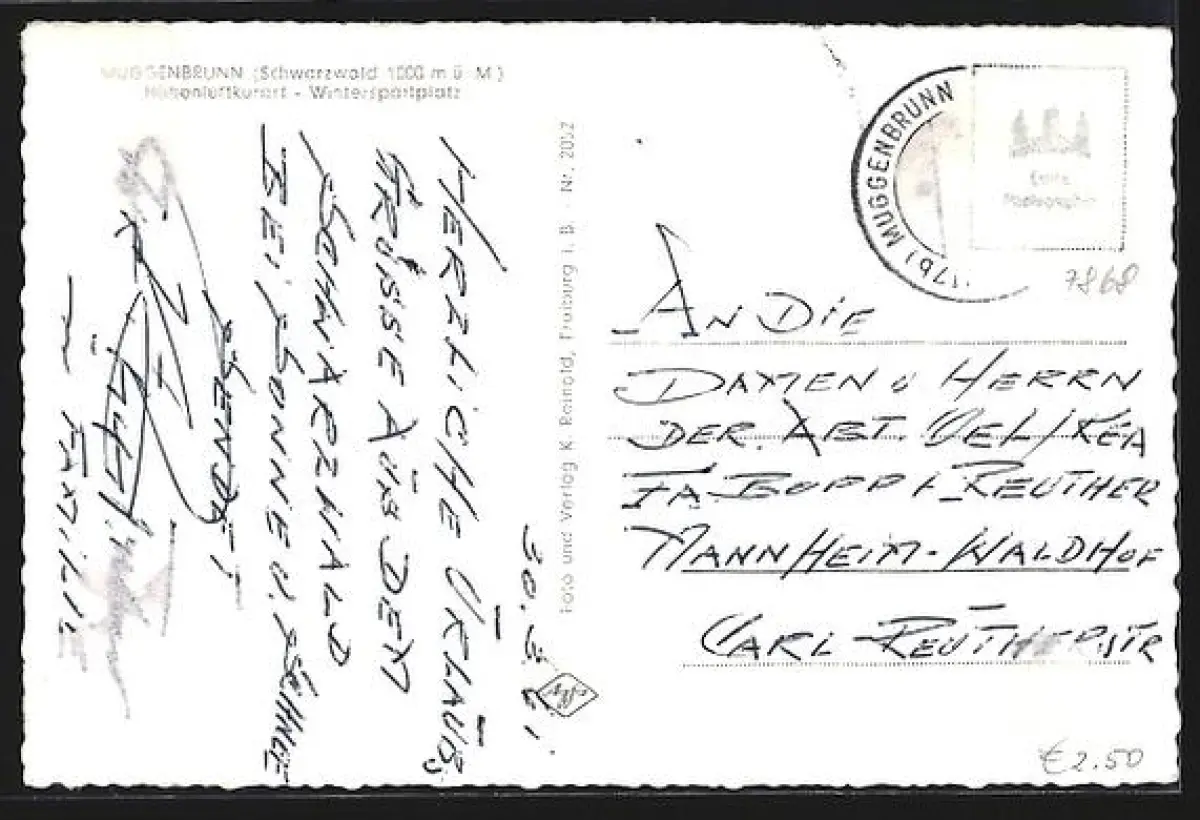 MUGGENBRUNN (Schwarzwald 1000 m ü. M.)
Höhenluftkurort - Wintersportplatz
30.3.61
HERZLICHE URLAUBS
GRÜSSE AUS DEM
SCHWARZWALD
BEI SONNE U. SCHNEE
SENDET
FAMILIE
Foto und Verlag K. Reinold, Freiburg i. B. - Nr. 2052
(17b) MUGGENBRUNN
Echte
Photographie
7868
AN DIE
DAMEN u HERRN
DER ABT.
FA. BOPP + REUTHER
MANNHEIM-WALDHOF
CARL-REUTHERSTR
€2.50